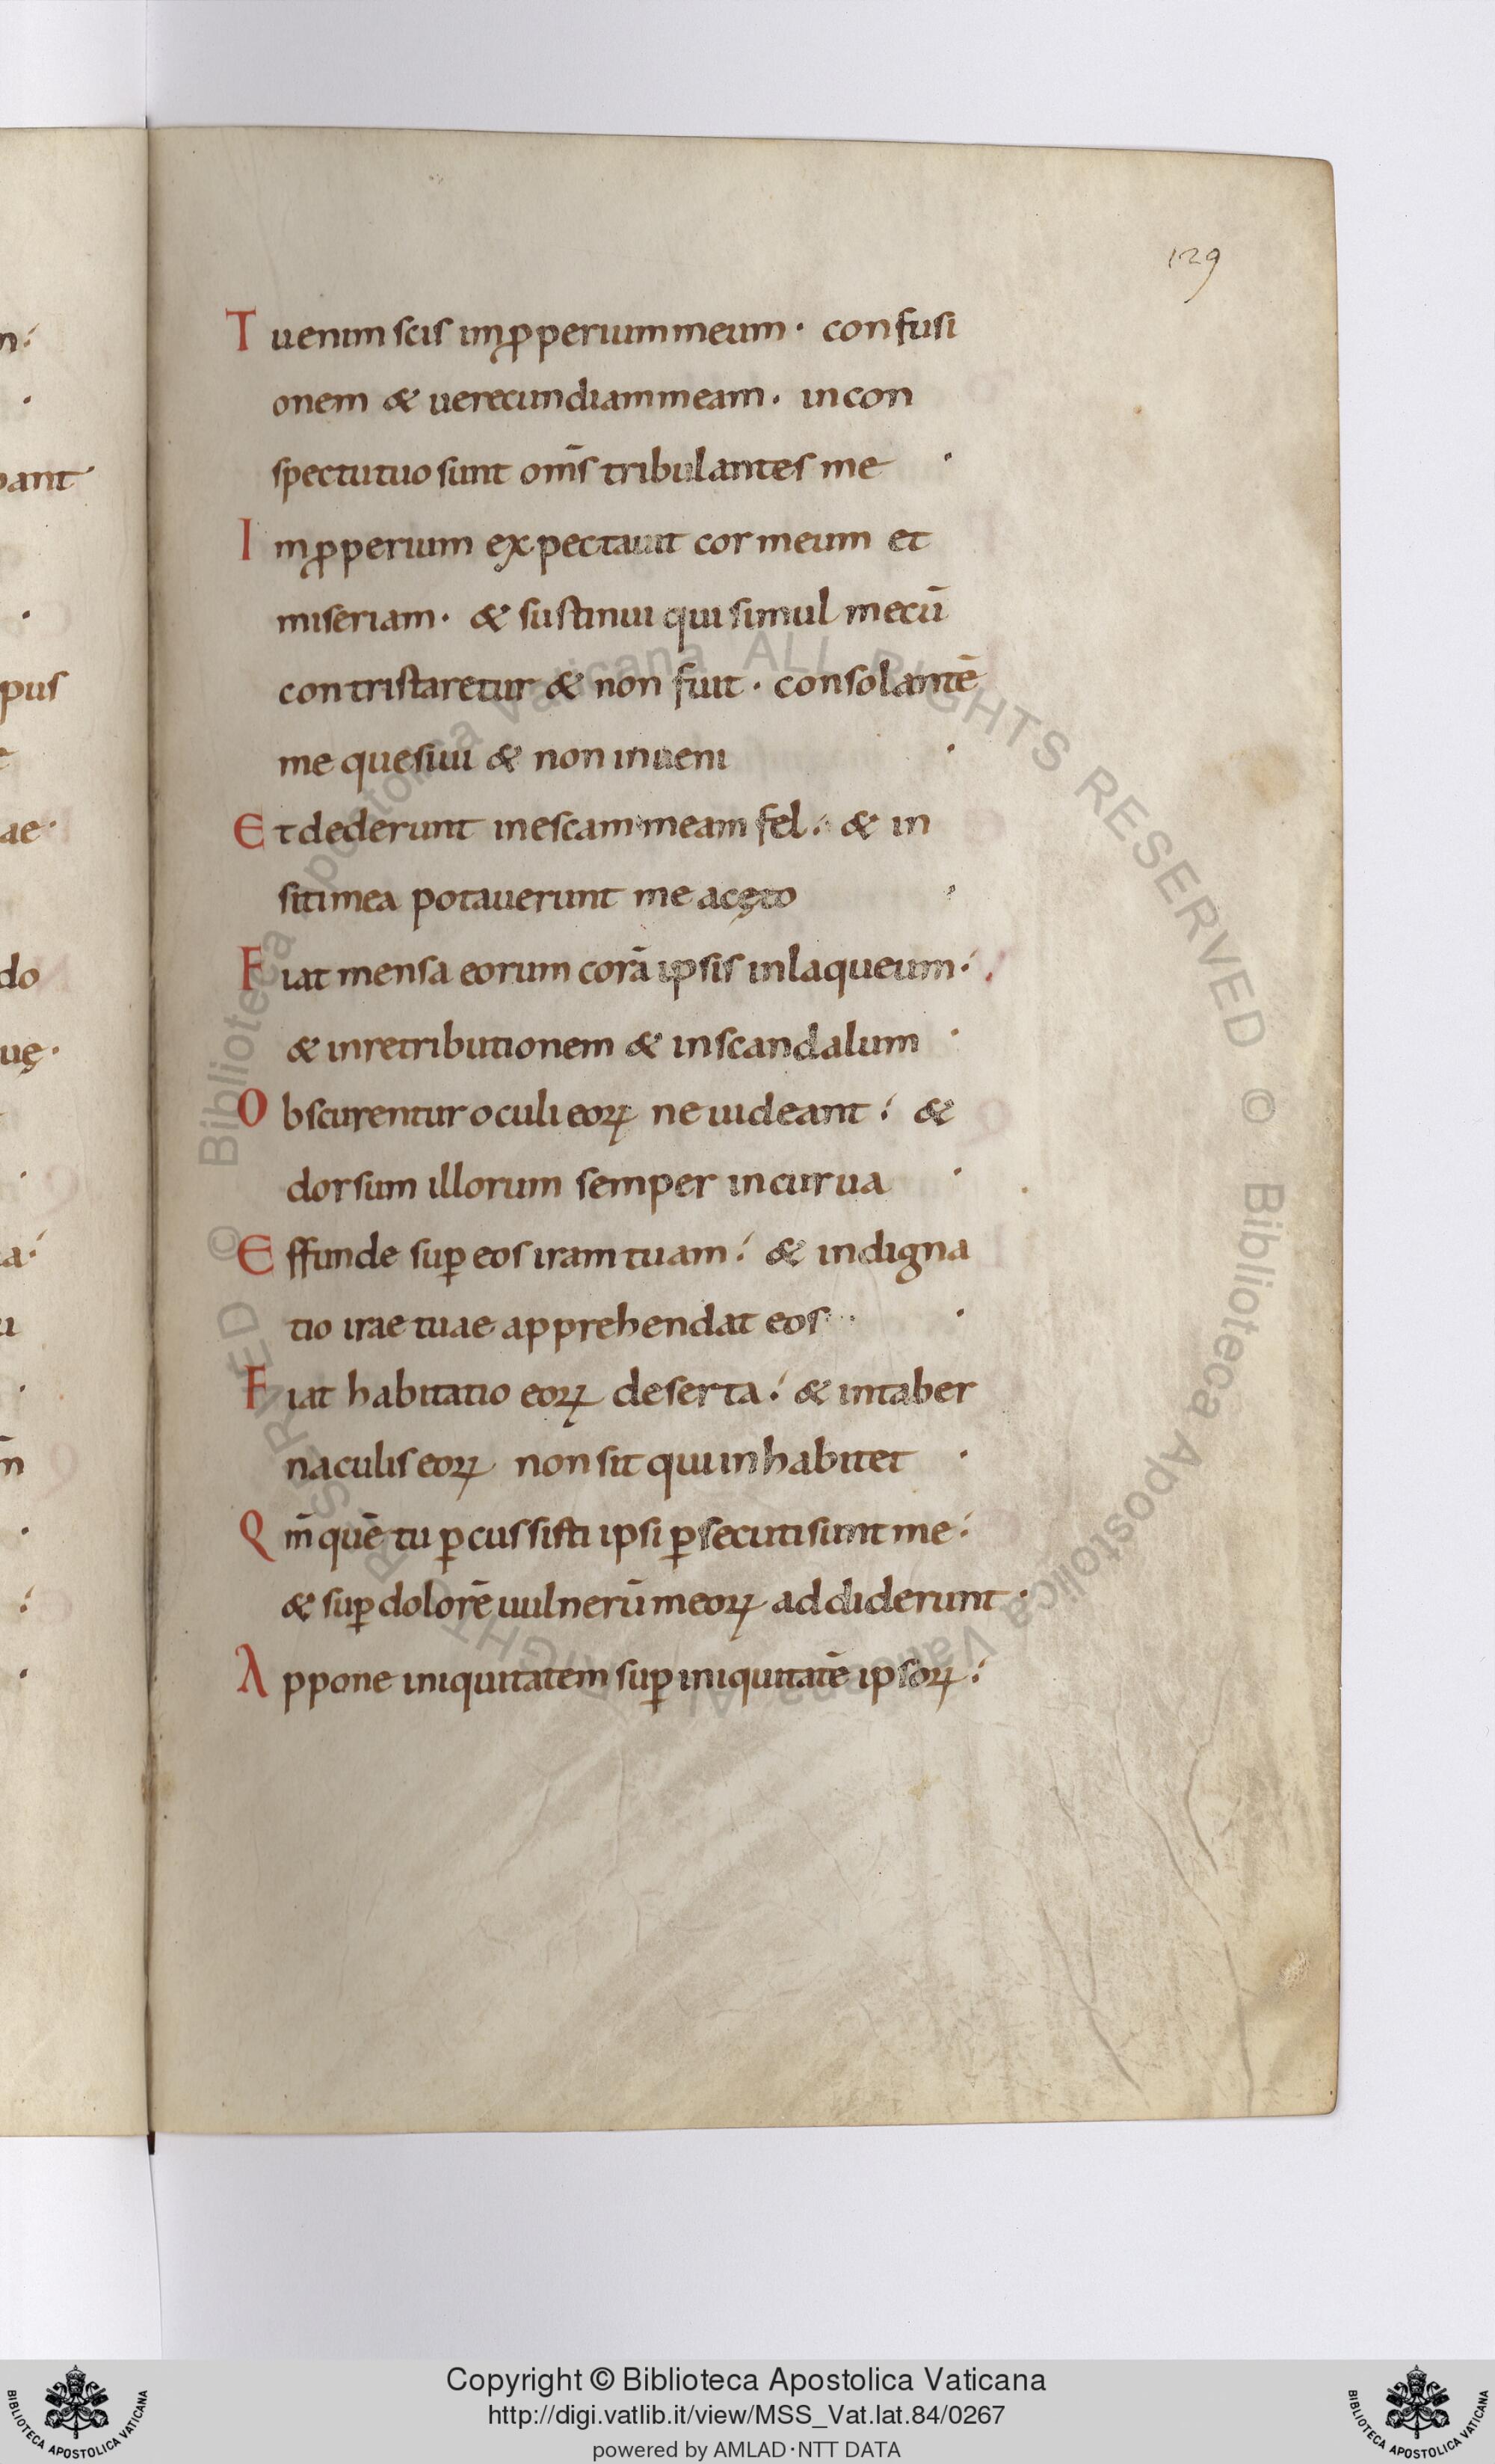 129
Tu enim scis imꝓperium meum · confusi
onem & uerecundiam meam · in con
spectu tuo sunt om̄s tribulantes me ·
Imꝓperium expectauit cor meum et
miseriam · & sustinui qui simul mecū
contristaretur & non fuit · consolantē
me quesiui & non inueni ·
Et dederunt in escam meam fel : & in
siti mea potauerunt me acęto ·
Fiat mensa eorum corā ipsis in laqueum ·
& in retributionem & in scandalum ·
Obscurentur oculi eoꝝ ne uideant : &
dorsum illorum semper incurua ·
Effunde suꝑ eos iram tuam : & indigna
tio irae tuae apprehendat eos ·
Fiat habitatio eoꝝ deserta : & in taber
naculis eoꝝ non sit qui inhabitet ·
Qm̄ quē tu ꝑcussisti ipsi ꝑsecuti sunt me :
& suꝑ dolorē uulnerū meoꝝ addiderunt ·
Appone iniquitatem suꝑ iniquitatē ipsoꝝ :
n :
bant
pus
ae ·
do
uę ·
a :
n̄
© Biblioteca Apostolica Vaticana ALL RIGHTS RESERVED
© Biblioteca Apostolica Vaticana ALL RIGHTS RESERVED
Copyright © Biblioteca Apostolica Vaticana
http://digi.vatlib.it/view/MSS_Vat.lat.84/0267
powered by AMLAD·NTT DATA
BIBLIOTECA APOSTOLICA VATICANA
BIBLIOTECA APOSTOLICA VATICANA